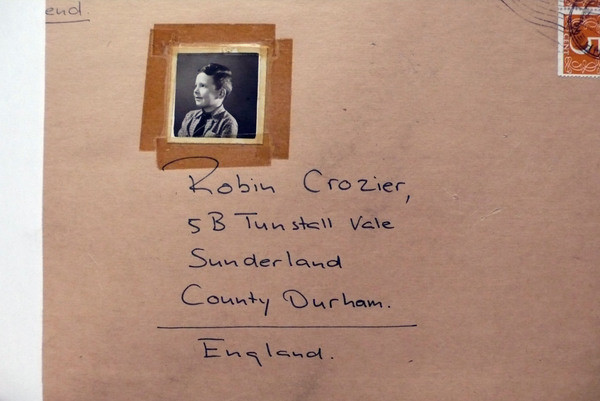 end
Robin Crozier,
5B Tunstall Vale
Sunderland
County Durham.
England.